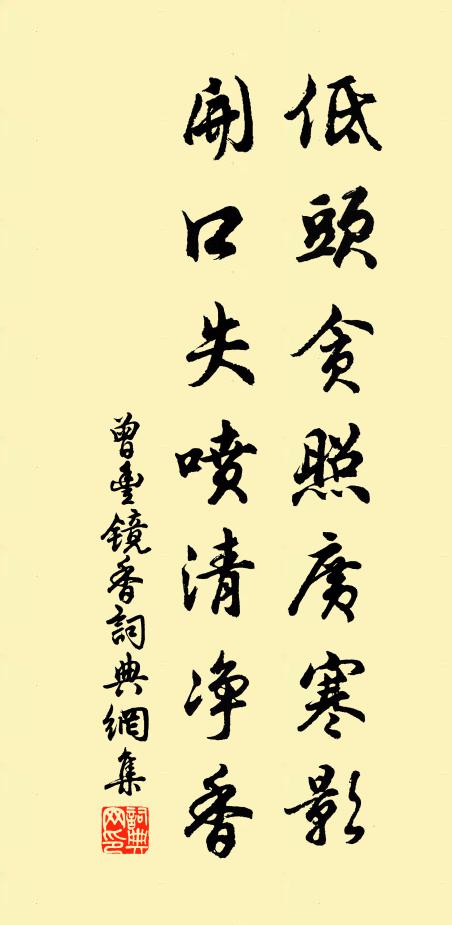 低頭貪照廣寒影
開口失噴清淨香
曾豐鏡香詞典網集
詞典網印